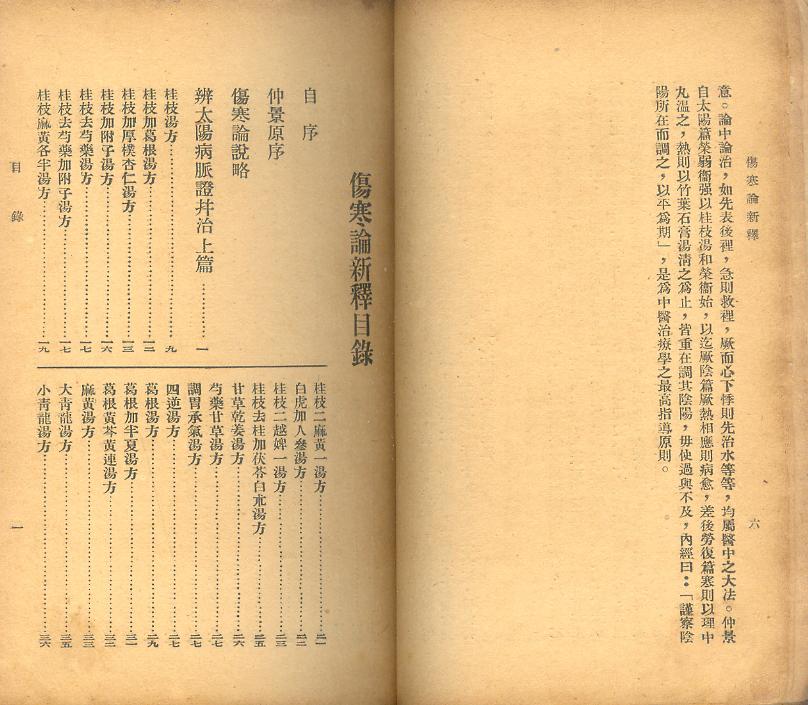 傷寒論新釋
六
意。論中論治，如先表後裡，急則救裡，厥而心下悸則先治水等等，均屬醫中之大法。仲景
自太陽篇榮弱衞强以桂枝湯和榮衞始，以迄厥陰篇厥熱相應則病愈，差後勞復篇寒則以理中
丸溫之，熱則以竹葉石膏湯淸之爲止，皆重在調其陰陽，毋使過與不及，內經曰：「謹察陰
陽所在而調之，以平爲期」，是爲中醫治療學之最高指導原則。
傷寒論新釋目錄
自序
仲景原序
傷寒論說略
辨太陽病脈證并治上篇……一
桂枝湯方……九
桂枝加葛根湯方……一二
桂枝加厚樸杏仁湯方……一三
桂枝加附子湯方……一六
桂枝去芍藥湯方……一七
桂枝去芍藥加附子湯方……一七
桂枝麻黃各半湯方……一九
桂枝二麻黃一湯方……二一
白虎加人參湯方……二二
桂枝二越婢一湯方……二三
桂枝去桂加茯苓白朮湯方……二五
甘草乾姜湯方……二六
芍藥甘草湯方……二七
調胃承氣湯方……二七
四逆湯方……二七
葛根湯方……二九
葛根加半夏湯方……三一
葛根黃芩黃連湯方……三二
麻黃湯方……三三
大靑龍湯方……三五
小靑龍湯方……三六
目錄
一